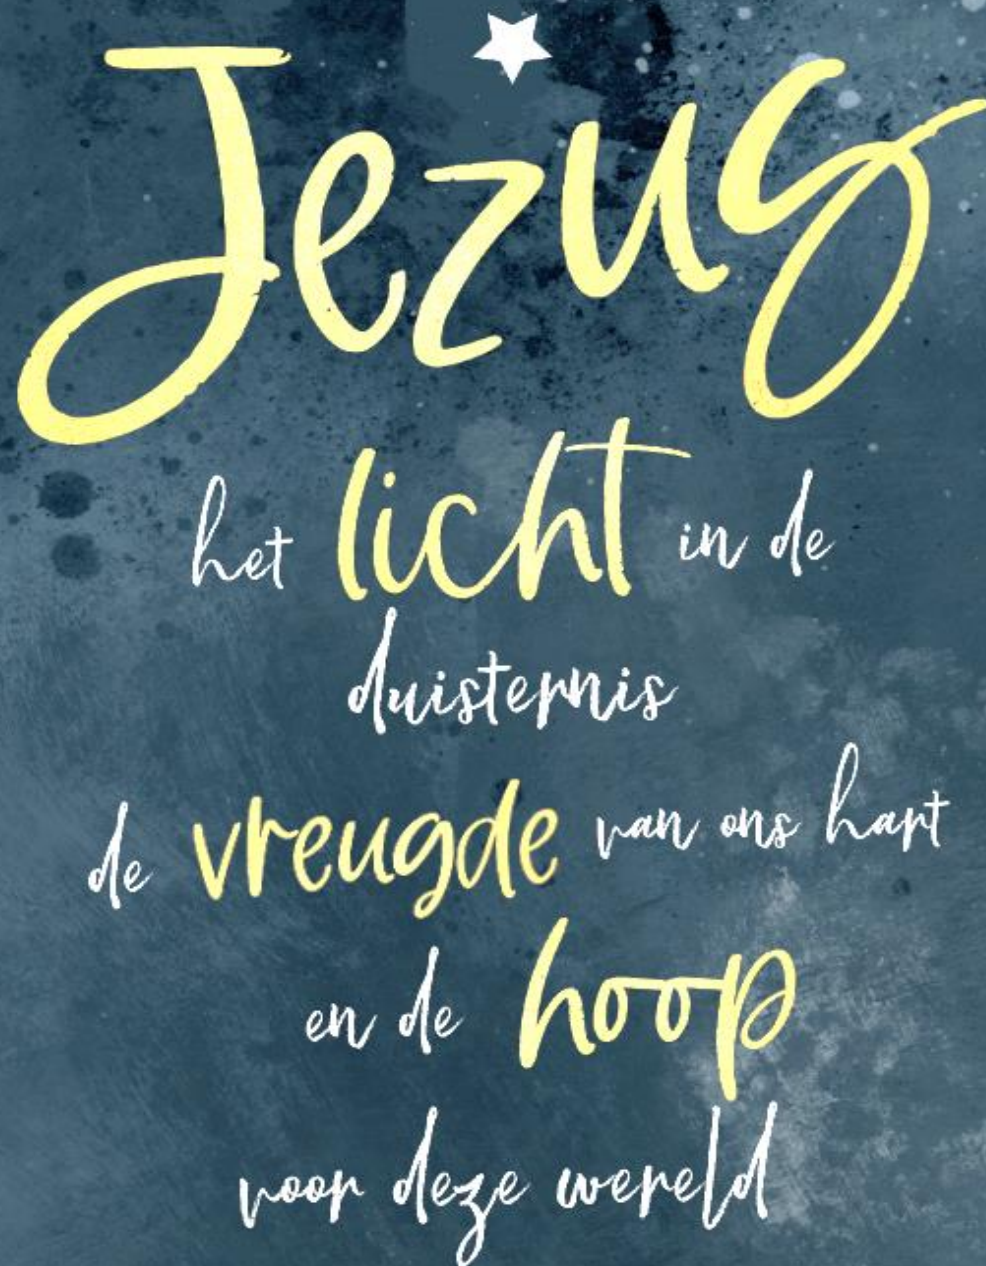 Jezus
het licht in de
duisternis
de vreugde van ons hart
en de hoop
voor deze wereld